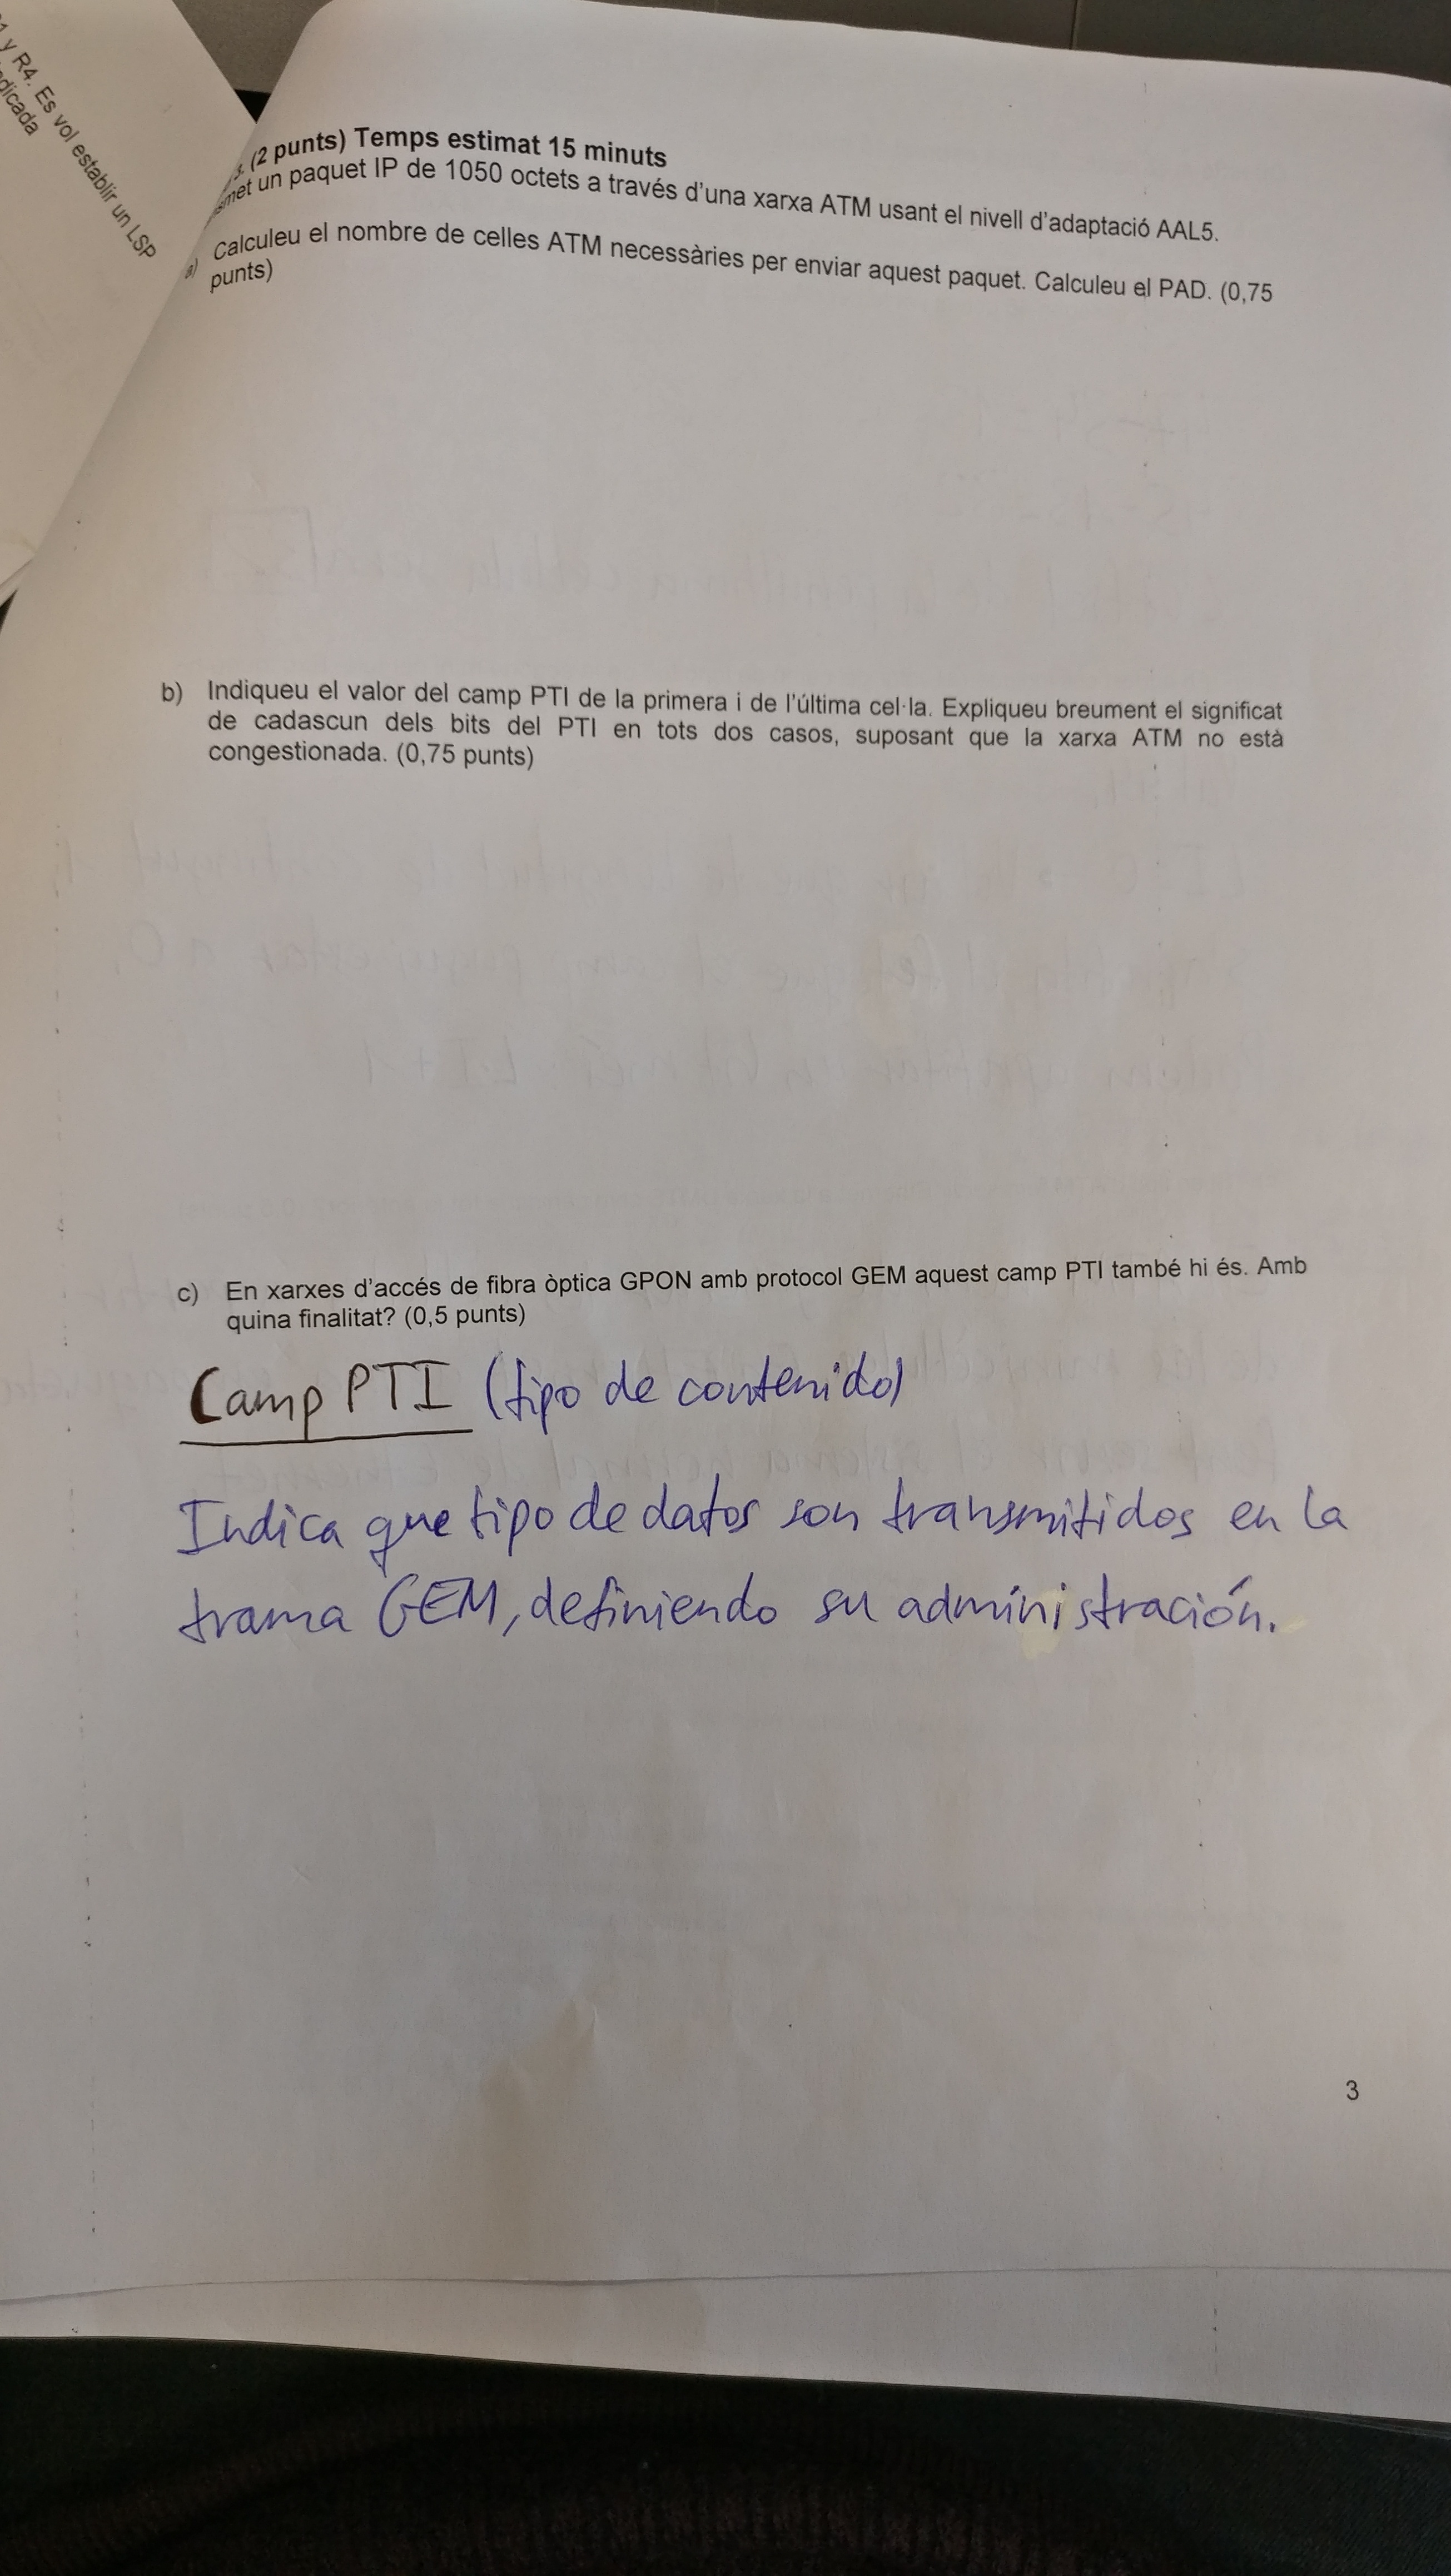 1 y R4. Es vol establir un LSP
dicada
3. (2 punts) Temps estimat 15 minuts
smet un paquet IP de 1050 octets a través d'una xarxa ATM usant el nivell d'adaptació AAL5.
a) Calculeu el nombre de celles ATM necessàries per enviar aquest paquet. Calculeu el PAD. (0,75
punts)
b) Indiqueu el valor del camp PTI de la primera i de l'última cel·la. Expliqueu breument el significat
de cadascun dels bits del PTI en tots dos casos, suposant que la xarxa ATM no està
congestionada. (0,75 punts)
c) En xarxes d'accés de fibra òptica GPON amb protocol GEM aquest camp PTI també hi és. Amb
quina finalitat? (0,5 punts)
Camp PTI (tipo de contenido)
Indica que tipo de datos son transmitidos en la
trama GEM, definiendo su administración.
3